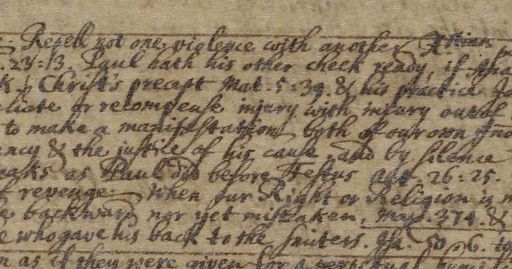 Repell not one violence with another
23:13. Paul hath his other cheek ready, if
Christ's precept Mat. 5:39. & his practice
or recompense injury with injury out of
to make a manifestation both of our own
& the justice of his cause and by silence
as Paul did before Festus Act. 26. 25.
revenge. When our Right or Religion is
backward nor yet mistaken.
who gave his back to the smiters. Isa. 50. 6. to
as if they were given for a